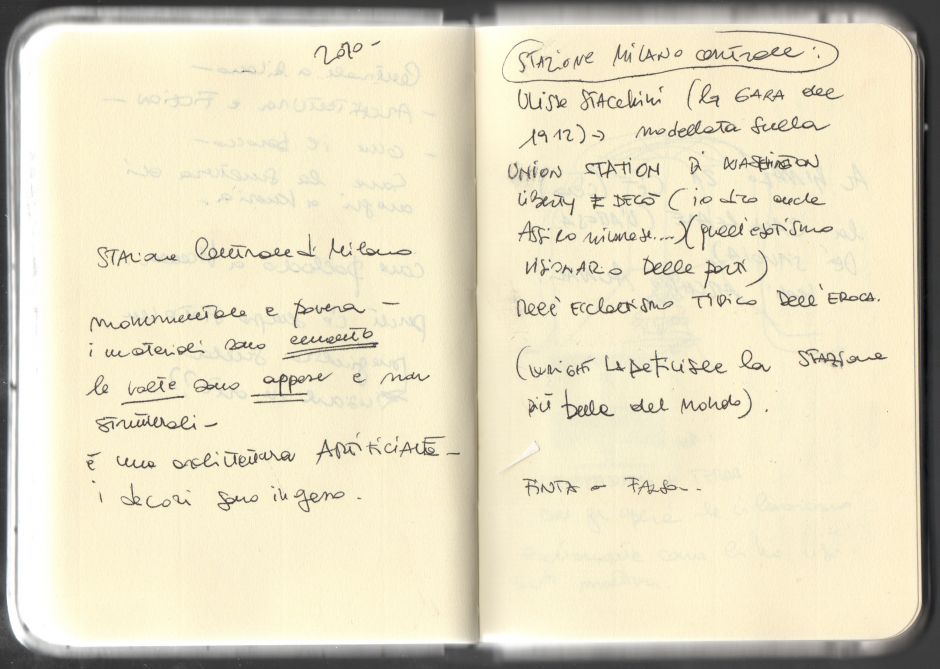 2010 -
STAZIONE Centrale di Milano
monumentale e povera -
i materiali sono cemento
le volte sono appese e non
strutturali -
è una architettura ARTIFICIALE -
i decori sono in gesso.
STAZIONE MILANO centrale:
Ulisse STACCHINI (la GARA del
1912) → modellata sulla
UNION STATION DI WASHINGTON
LIBERTY E DECÒ (io dico anche
ASSIRO ninivese...) (quell'esotismo
VISIONARIO Delle parti)
Nell'ECLETTISMO TIPICO DELL'EPOCA.
(WRIGHT LA DEFINISCE la STAZIONE
più bella del Mondo).
FINTA - FALSA..